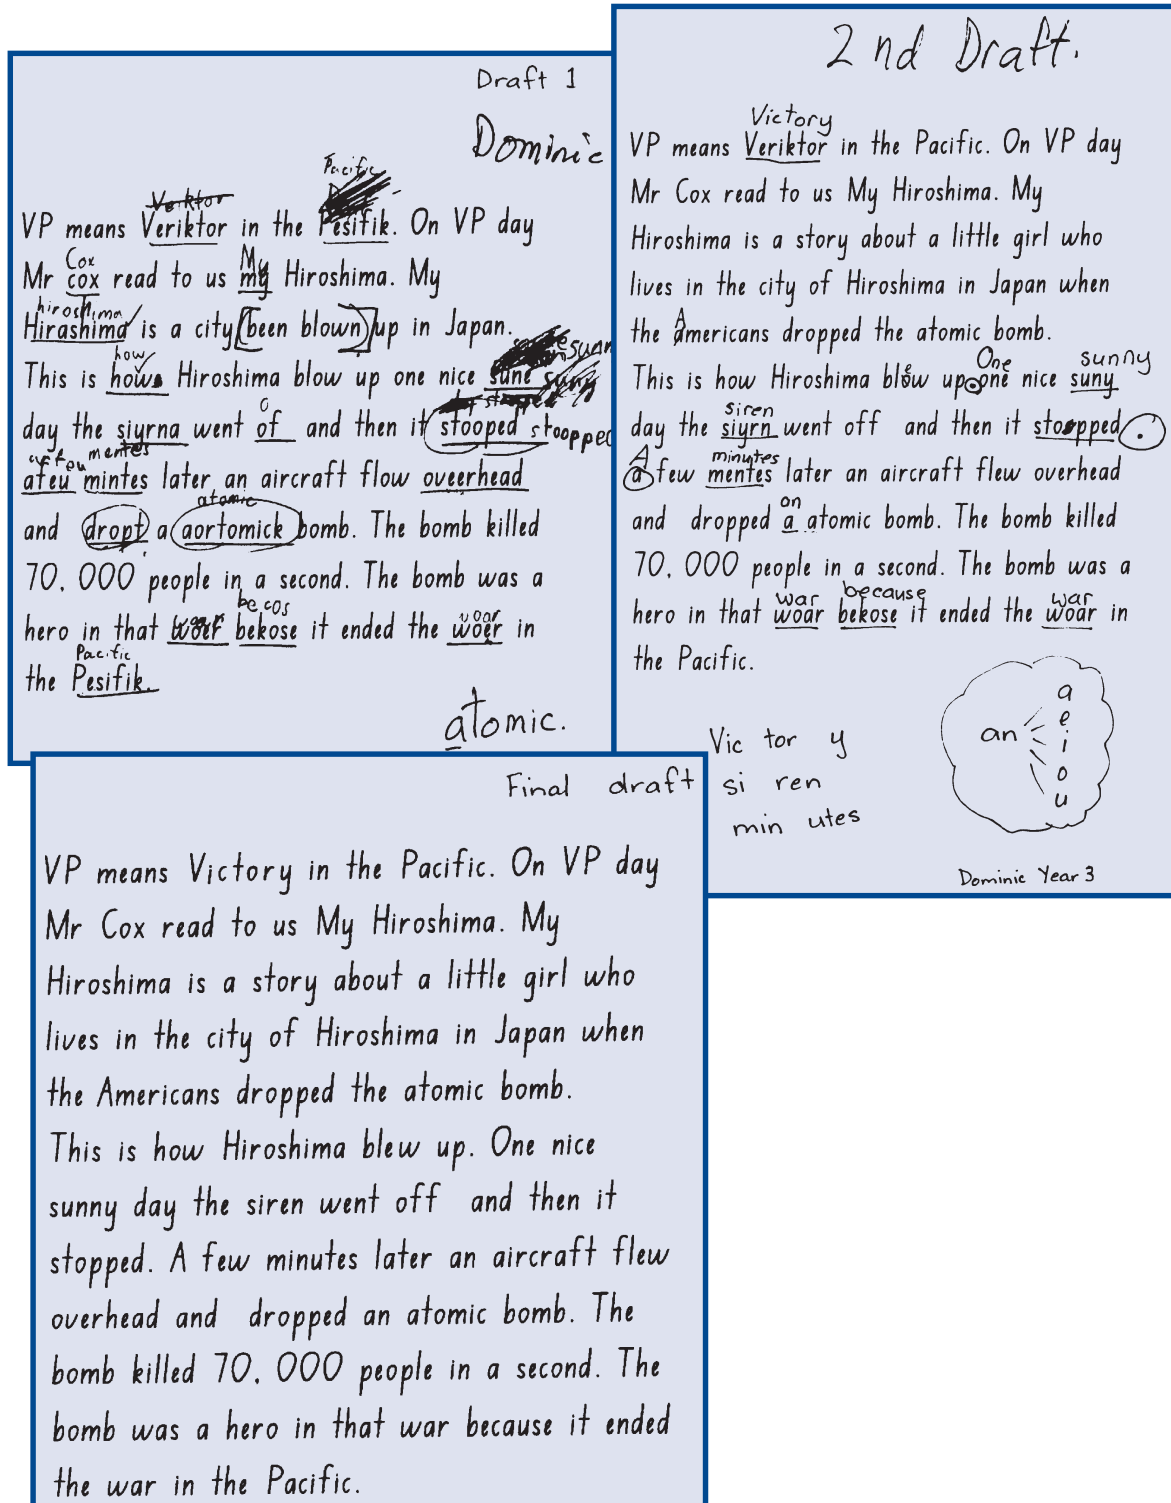 Draft 1
Dominic
Veriktor
Pacific
VP means Veriktor in the Pesifik. On VP day
Cox My
Mr cox read to us my Hiroshima. My
hiroshima
Hirashima is a city (been blown) up in Japan.
how
This is hows Hiroshima blow up one nice sune suny
o
day the siyrna went of and then it stooped stoopped
a feu mentes
afeu mintes later an aircraft flow oveerhead
atomic
and dropt a aortomick bomb. The bomb killed
70,000 people in a second. The bomb was a
becos woar
hero in that woer bekose it ended the woer in
Pacific
the Pesifik.
atomic.
2nd Draft.
Victory
VP means Veriktor in the Pacific. On VP day
Mr Cox read to us My Hiroshima. My
Hiroshima is a story about a little girl who
lives in the city of Hiroshima in Japan when
A
the americans dropped the atomic bomb.
e One sunny
This is how Hiroshima blow up. one nice suny
siren
day the siyrn went off and then it stopped.
A minutes
a few mentes later an aircraft flew overhead
an
and dropped a atomic bomb. The bomb killed
70,000 people in a second. The bomb was a
war because war
hero in that woar bekose it ended the woar in
the Pacific.
Vic tor y
si ren
min utes
an
a
e
i
o
u
Dominic Year 3
Final draft
VP means Victory in the Pacific. On VP day
Mr Cox read to us My Hiroshima. My
Hiroshima is a story about a little girl who
lives in the city of Hiroshima in Japan when
the Americans dropped the atomic bomb.
This is how Hiroshima blew up. One nice
sunny day the siren went off and then it
stopped. A few minutes later an aircraft flew
overhead and dropped an atomic bomb. The
bomb killed 70,000 people in a second. The
bomb was a hero in that war because it ended
the war in the Pacific.